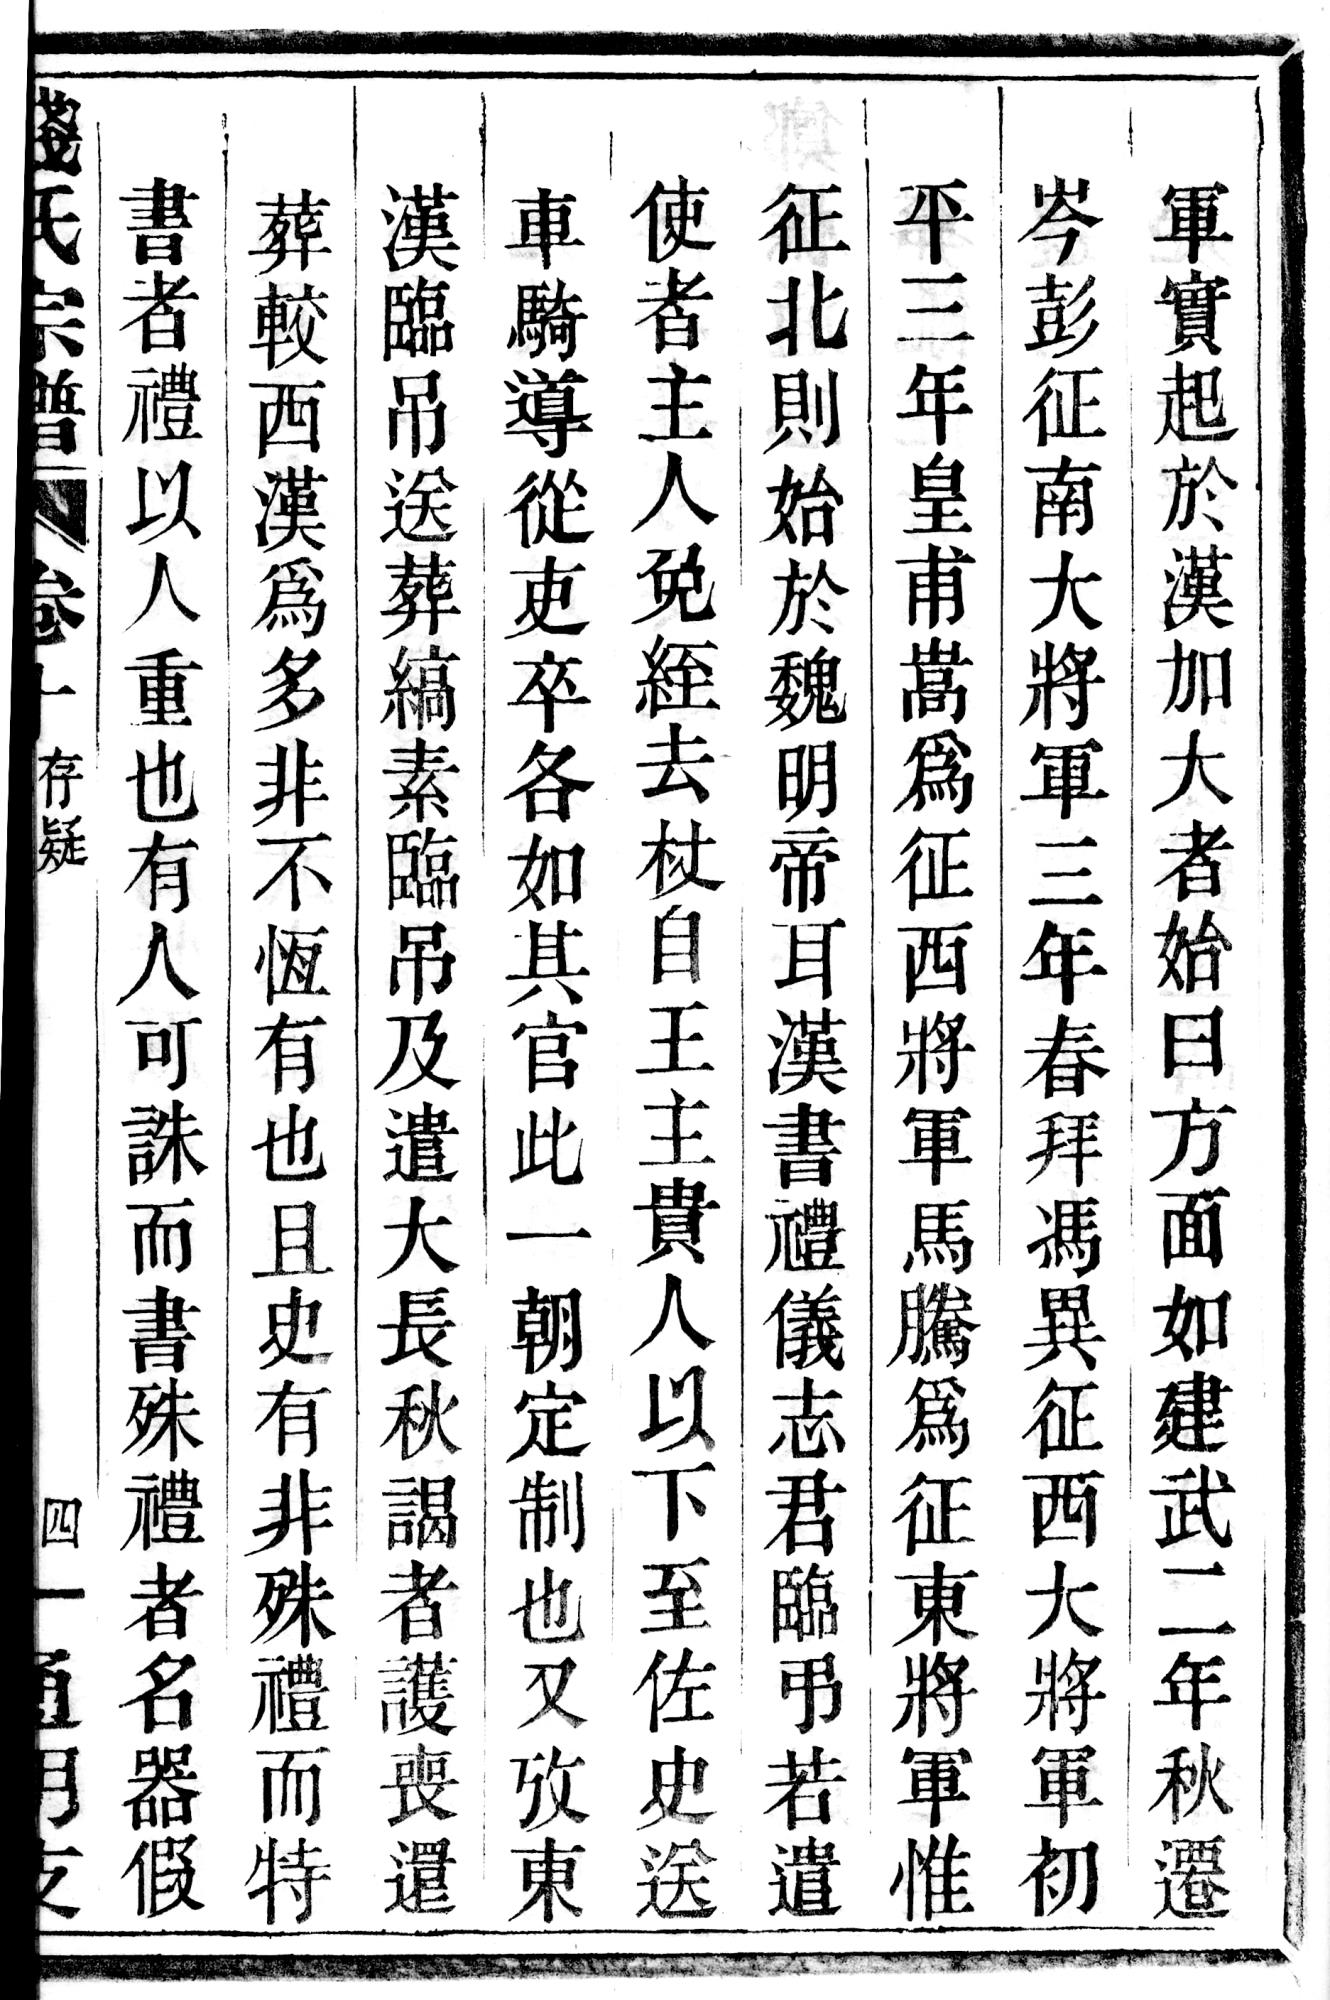 軍實起於漢加大者始曰方面如建武二年秋遷
岑彭征南大將軍三年春拜馮異征西大將軍初
平三年皇甫嵩爲征西將軍馬騰爲征東將軍惟
征北則始於魏明帝耳漢書禮儀志君臨弔若遣
使者主人免絰去杖自王主貴人以下至佐史送
車騎導從吏卒各如其官此一朝定制也又攷東
漢臨吊送葬縞素臨吊及遣大長秋謁者護喪還
葬較西漢爲多非不恆有也且史有非殊禮而特
書者禮以人重也有人可誅而書殊禮者名器假
錢氏宗譜 卷十 存疑 四一 通明支